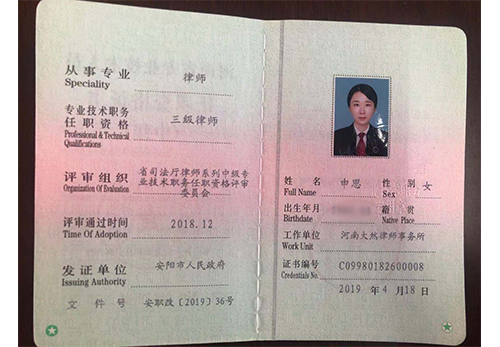 从事专业 律师
Speciality
专业技术职务
任职资格 三级律师
Professional & Technical
Qualifications
评审组织 省司法厅律师系列中级专
业技术职务任职资格评审
委员会
Organization Of Evaluation
评审通过时间 2018.12
Time Of Adoption
发证单位 安阳市人民政府
Issuing Authority
文件号 安职改〔2019〕36号
姓名 申思 性别 女
Full Name Sex
出生年月 籍贯
Birthdate Native Place
工作单位 河南大然律师事务所
Work Unit
证书编号 C09980182600008
Credentials No.
2019 年 4 月 18 日